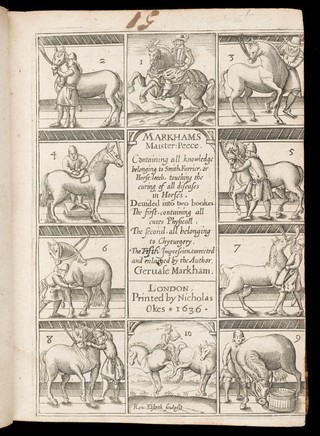 51
2
1
3
MARKHAMS
Maister-Peece.
Containing all knowledge
belonging to Smith, Ferrier, or
Horse-leech, touching the
curing of all diseases
in Horses.
Deuided into two bookes
The first containing all
cures Physicall
The second all belonging
to Chyrurgery.
The Fifth Impression, corrected
and enlarged by the Author,
Geruase Markham.
4
5
6
7
LONDON.
Printed by Nicholas
Okes • 1636 •
8
10
9